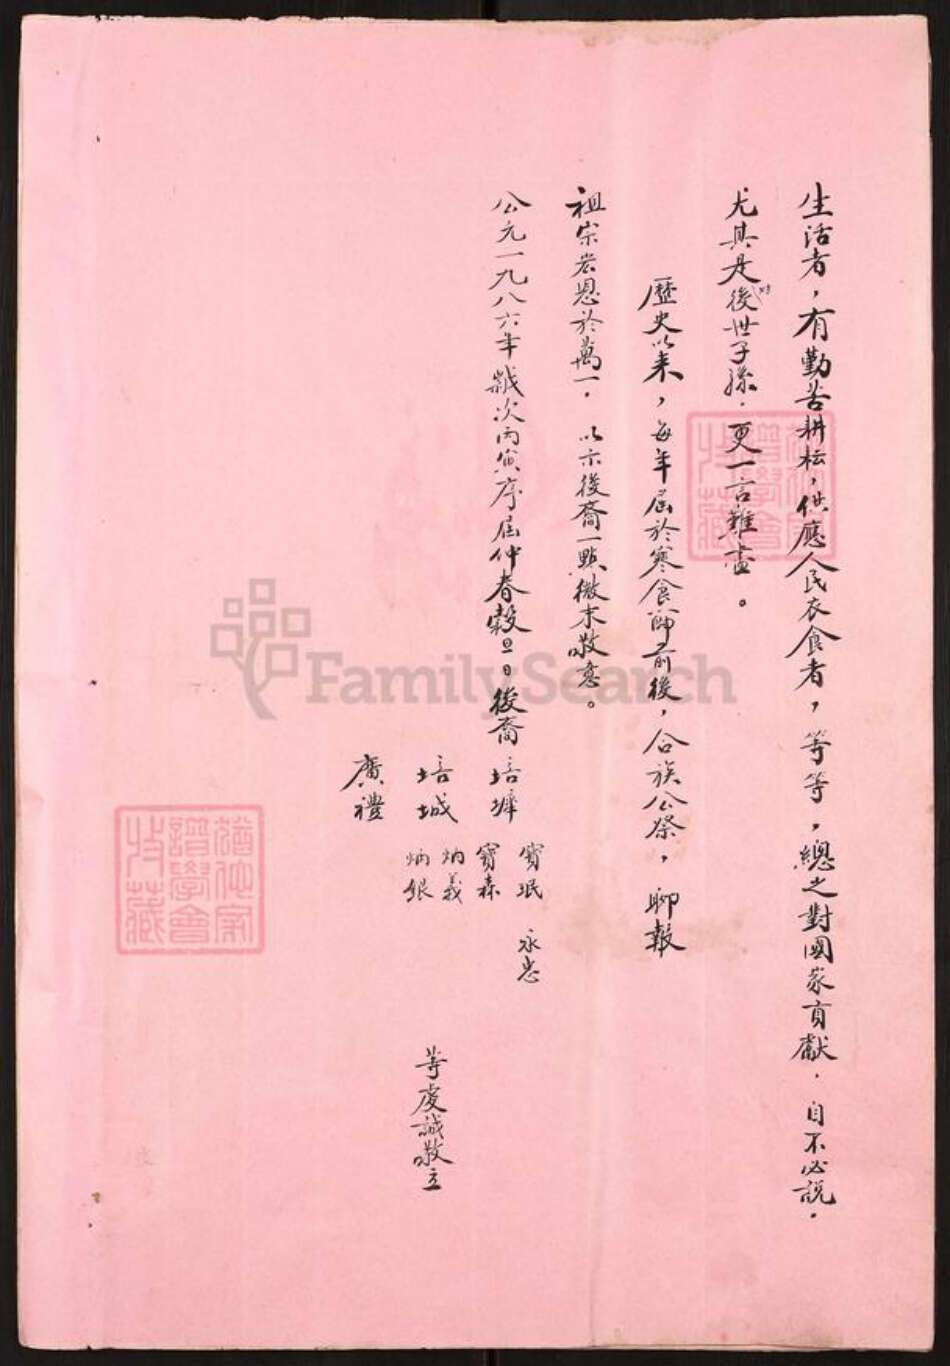 生活者，有勤苦耕耘，供應人民衣食者，等等，總之對國家貢獻．自不必說．
尤其是後世子孫．更一言難盡。
对
歷史以來，每年屆於寒食節前後，合族公祭，聊報
祖宗宏恩於萬一．以示後裔一點微末敬意。
公元一九八六年歲次丙寅序屆仲春穀旦日後裔
培墀
培城
廣禮
寶珉
寶森
炳義
炳銀
永忠
等虔誠敬立
FamilySearch
譜學會
收藏
譜學會
收藏